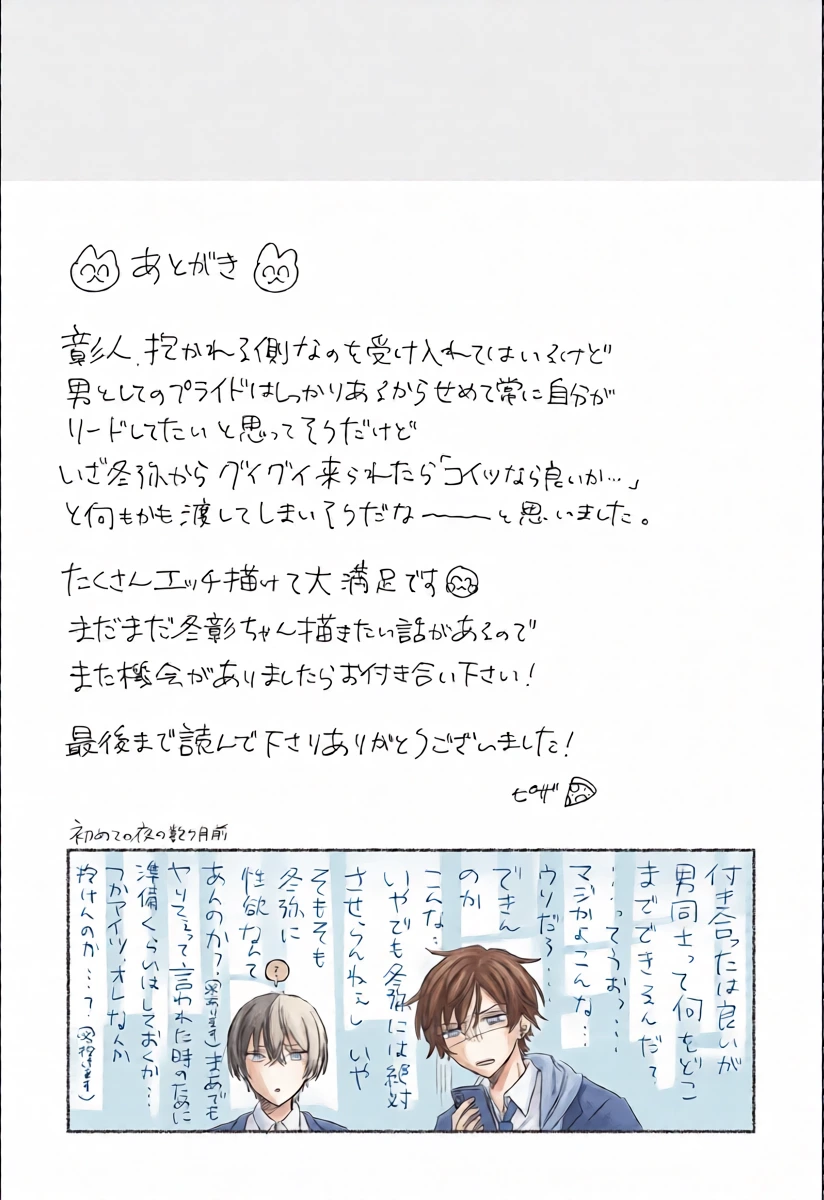 あとがき
彰人、抱かれる側なのを受け入れてはいるけど
男としてのプライドはしっかりあるからせめて常に自分が
リードしてたいと思ってそうだけど
いざ冬弥からグイグイ来られたら「コイツなら良いか…」
と何もかも渡してしまいそうだな〜〜〜と思いました。
たくさんエッチ描けて大満足です
まだまだ冬彰ちゃん描きたい話があるので
また機会がありましたらお付き合い下さい!
最後まで読んで下さりありがとうございました!
ピザ
初めての夜の数ヶ月前
付き合ったは良いが
男同士って何をどこ
までできるんだ?
…ってうおっ…
マジかよこんな…
ウソだろ…
できん
のか
こんな…
いやでも冬弥には絶対
させらんねぇし いや
そもそも
冬弥に
性欲なんて
あんのか?(※あります)まあでも
ヤりてぇって言われた時のために
準備くらいはしておくか…
つかアイツ、オレなんか
抱けんのか…?(※抱けます)
?